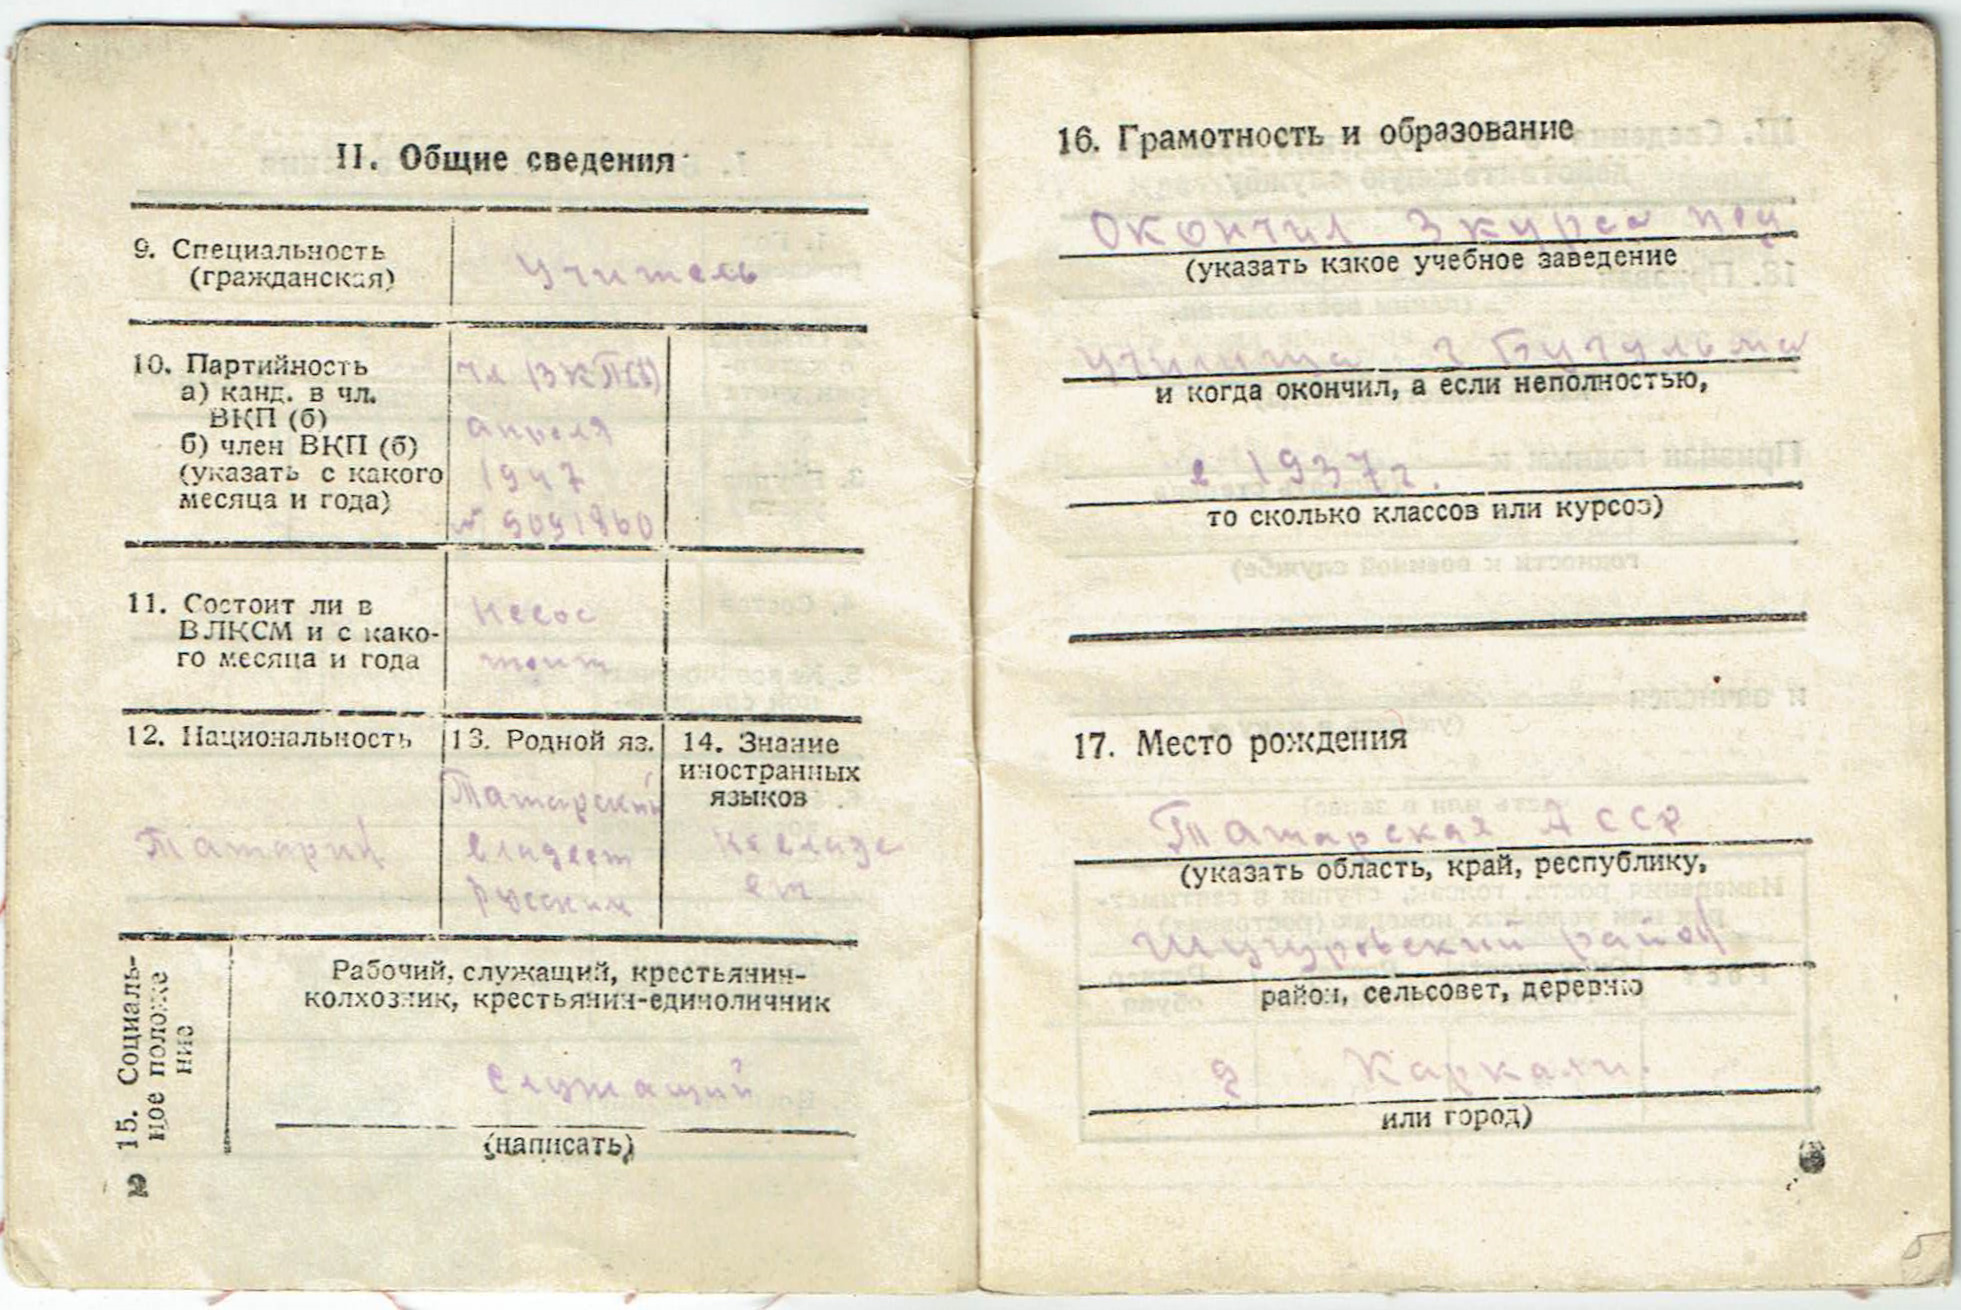 II. Общие сведения
9. Специальность
(гражданская)
учитель
10. Партийность
а) канд. в чл.
ВКП (б)
б) член ВКП (б)
(указать с какого
месяца и года)
чл ВКП(б)
апреля
1947
№ 9091860
11. Состоит ли в
ВЛКСМ и с како-
го месяца и года
несос
тоит
12. Национальность
Татарин
13. Родной яз.
Татарский
владеет
русским
14. Знание
иностранных
языков
не владе
ет
15. Социаль-
ное положе
ние
Рабочий, служащий, крестьянин-
колхозник, крестьянин-единоличник
Служащий
(написать)
2
16. Грамотность и образование
Окончил 3 курса пед
(указать какое учебное заведение
училища г Бугульма
и когда окончил, а если неполностью,
в 1937г.
то сколько классов или курсов)
17. Место рождения
Татарская АССР
(указать область, край, республику,
Шугуровский район
район, сельсовет, деревню
д Каркали.
или город)
5